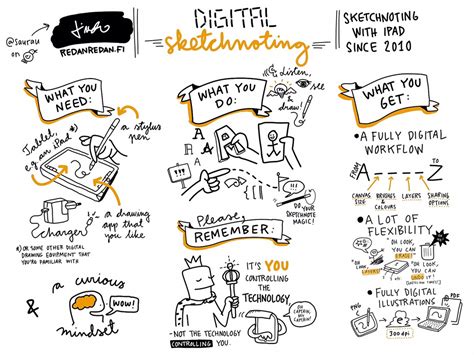 @saurau
on
REDANREDAN.FI
DIGITAL
Sketchnoting
SKETCHNOTING
WITH IPAD
SINCE 2010
WHAT YOU
NEED:
a stylus
pen
Tablet,
e.g an iPad*)
Charger
a drawing
app that
you like
*) OR SOME OTHER DIGITAL
DRAWING EQUIPMENT THAT
YOU'RE FAMILIAR WITH
&
a curious
mindset
WOW!
WHAT YOU
DO:
Listen,
see
& draw!
A
A
A
!!!
DO YOUR
SKETCHNOTE
MAGIC!
Please,
REMEMBER:
IT'S YOU
CONTROLLING
THE
TECHNOLOGY
-NOT THE TECHNOLOGY
CONTROLLING YOU.
OH
CAPTAIN,
MY
CAPTAIN!
WHAT YOU
GET:
• A FULLY DIGITAL
WORKFLOW
FROM
A
TO
Z
CANVAS
SIZE
BRUSHES &
COLOURS
LAYERS
SHARING
OPTIONS
• A LOT OF
FLEXIBILITY
"OH LOOK,
YOU CAN
ERASE!"
"OH LOOK,
LAYERS!"
"OH LOOK,
YOU CAN
UNDO it
(UNTIL SOME TIME)
• FULLY DIGITAL
ILLUSTRATIONS
PNG
PDF
300dpi